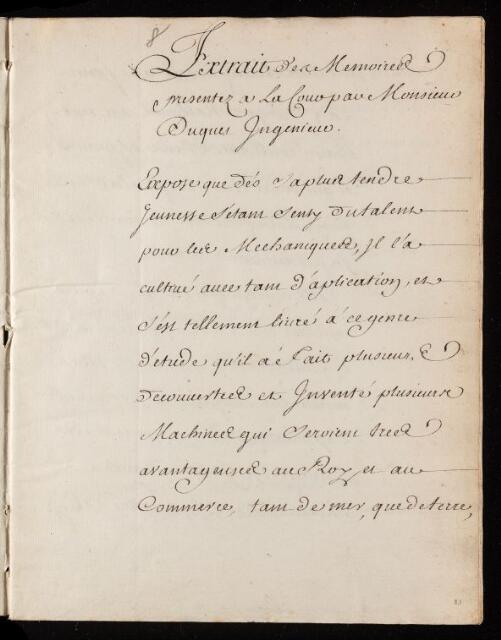 8
Extrait des Memoires
presentez a La Cour par Monsieur
Duquet Ingenieur.
Expose que dés sa plus tendre
Jeunesse S'étant Senty du talent
pour les Mechaniques, Jl l'a
cultivé avec tant d'aplication, et
s'est tellement livré à ce genre
d'étude qu'il a Fait plusieurs
Découvertes et Jnventé plusieurs
Machines qui Seroient tres
avantageuses au Roy et au
Commerce, tant de mer, que de terre,